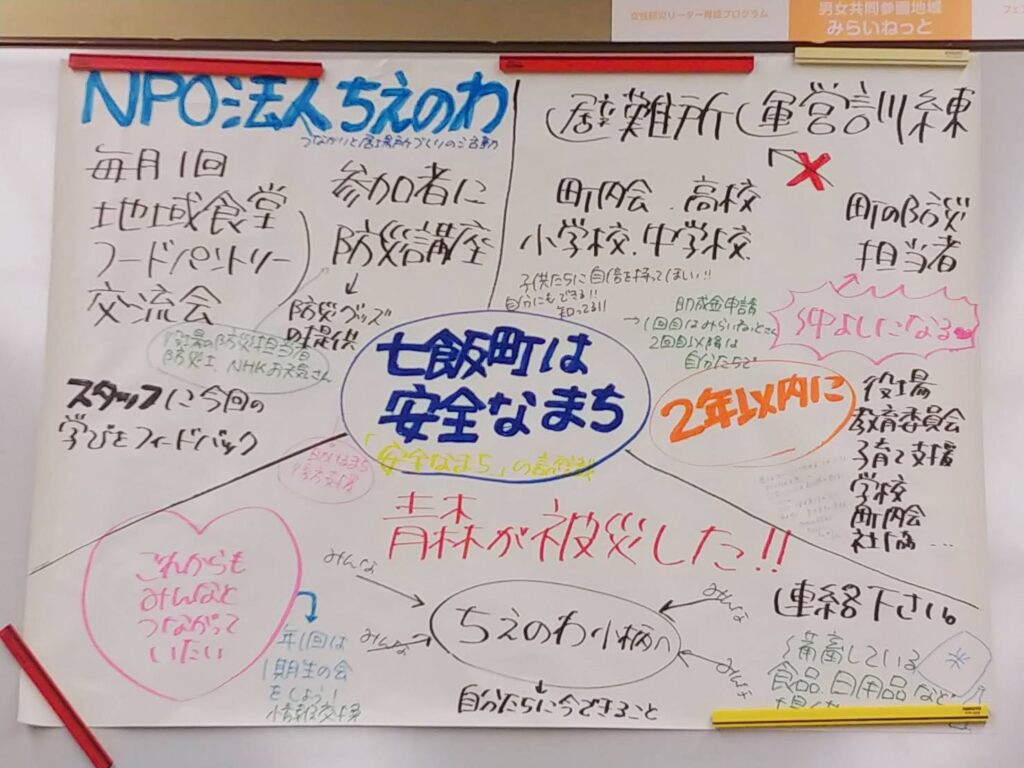 女性防災リーダー育成プログラム
男女共同参画地域
みらいねっと
フェス
NPO法人ちえのわ
つながりと居場所づくりの活動
毎月1回
地域食堂
フードパントリー
交流会
参加者に
防災講座
↓
防災グッズ
の提供
役場の防災担当者
防災士、NHKお天気さん
スタッフに今回の
学びをフィードバック
避難所運営訓練
町内会、高校
小学校、中学校、
子供たちに自信を持ってほしい!!
自分にもできる!!
知ってる!!
町の防災
担当者
仲よしになる
助成金申請
→1回目はみらいねっとさん
2回目以降は
自分たちで
七飯町は
安全なまち
「安全なまち」の
2年以内に
役場
教育委員会
子育て支援
学校
町内会
社協…
青森が被災した!!
これからも
みんなと
つながって
いたい
年1回は
1期生の会
をしよう!
情報交換
みんな
みんな
みんな
みんな
ちえのわ小柄へ
↓
自分たちに今できること
連絡下さい。
備蓄している
食品、日用品など
米